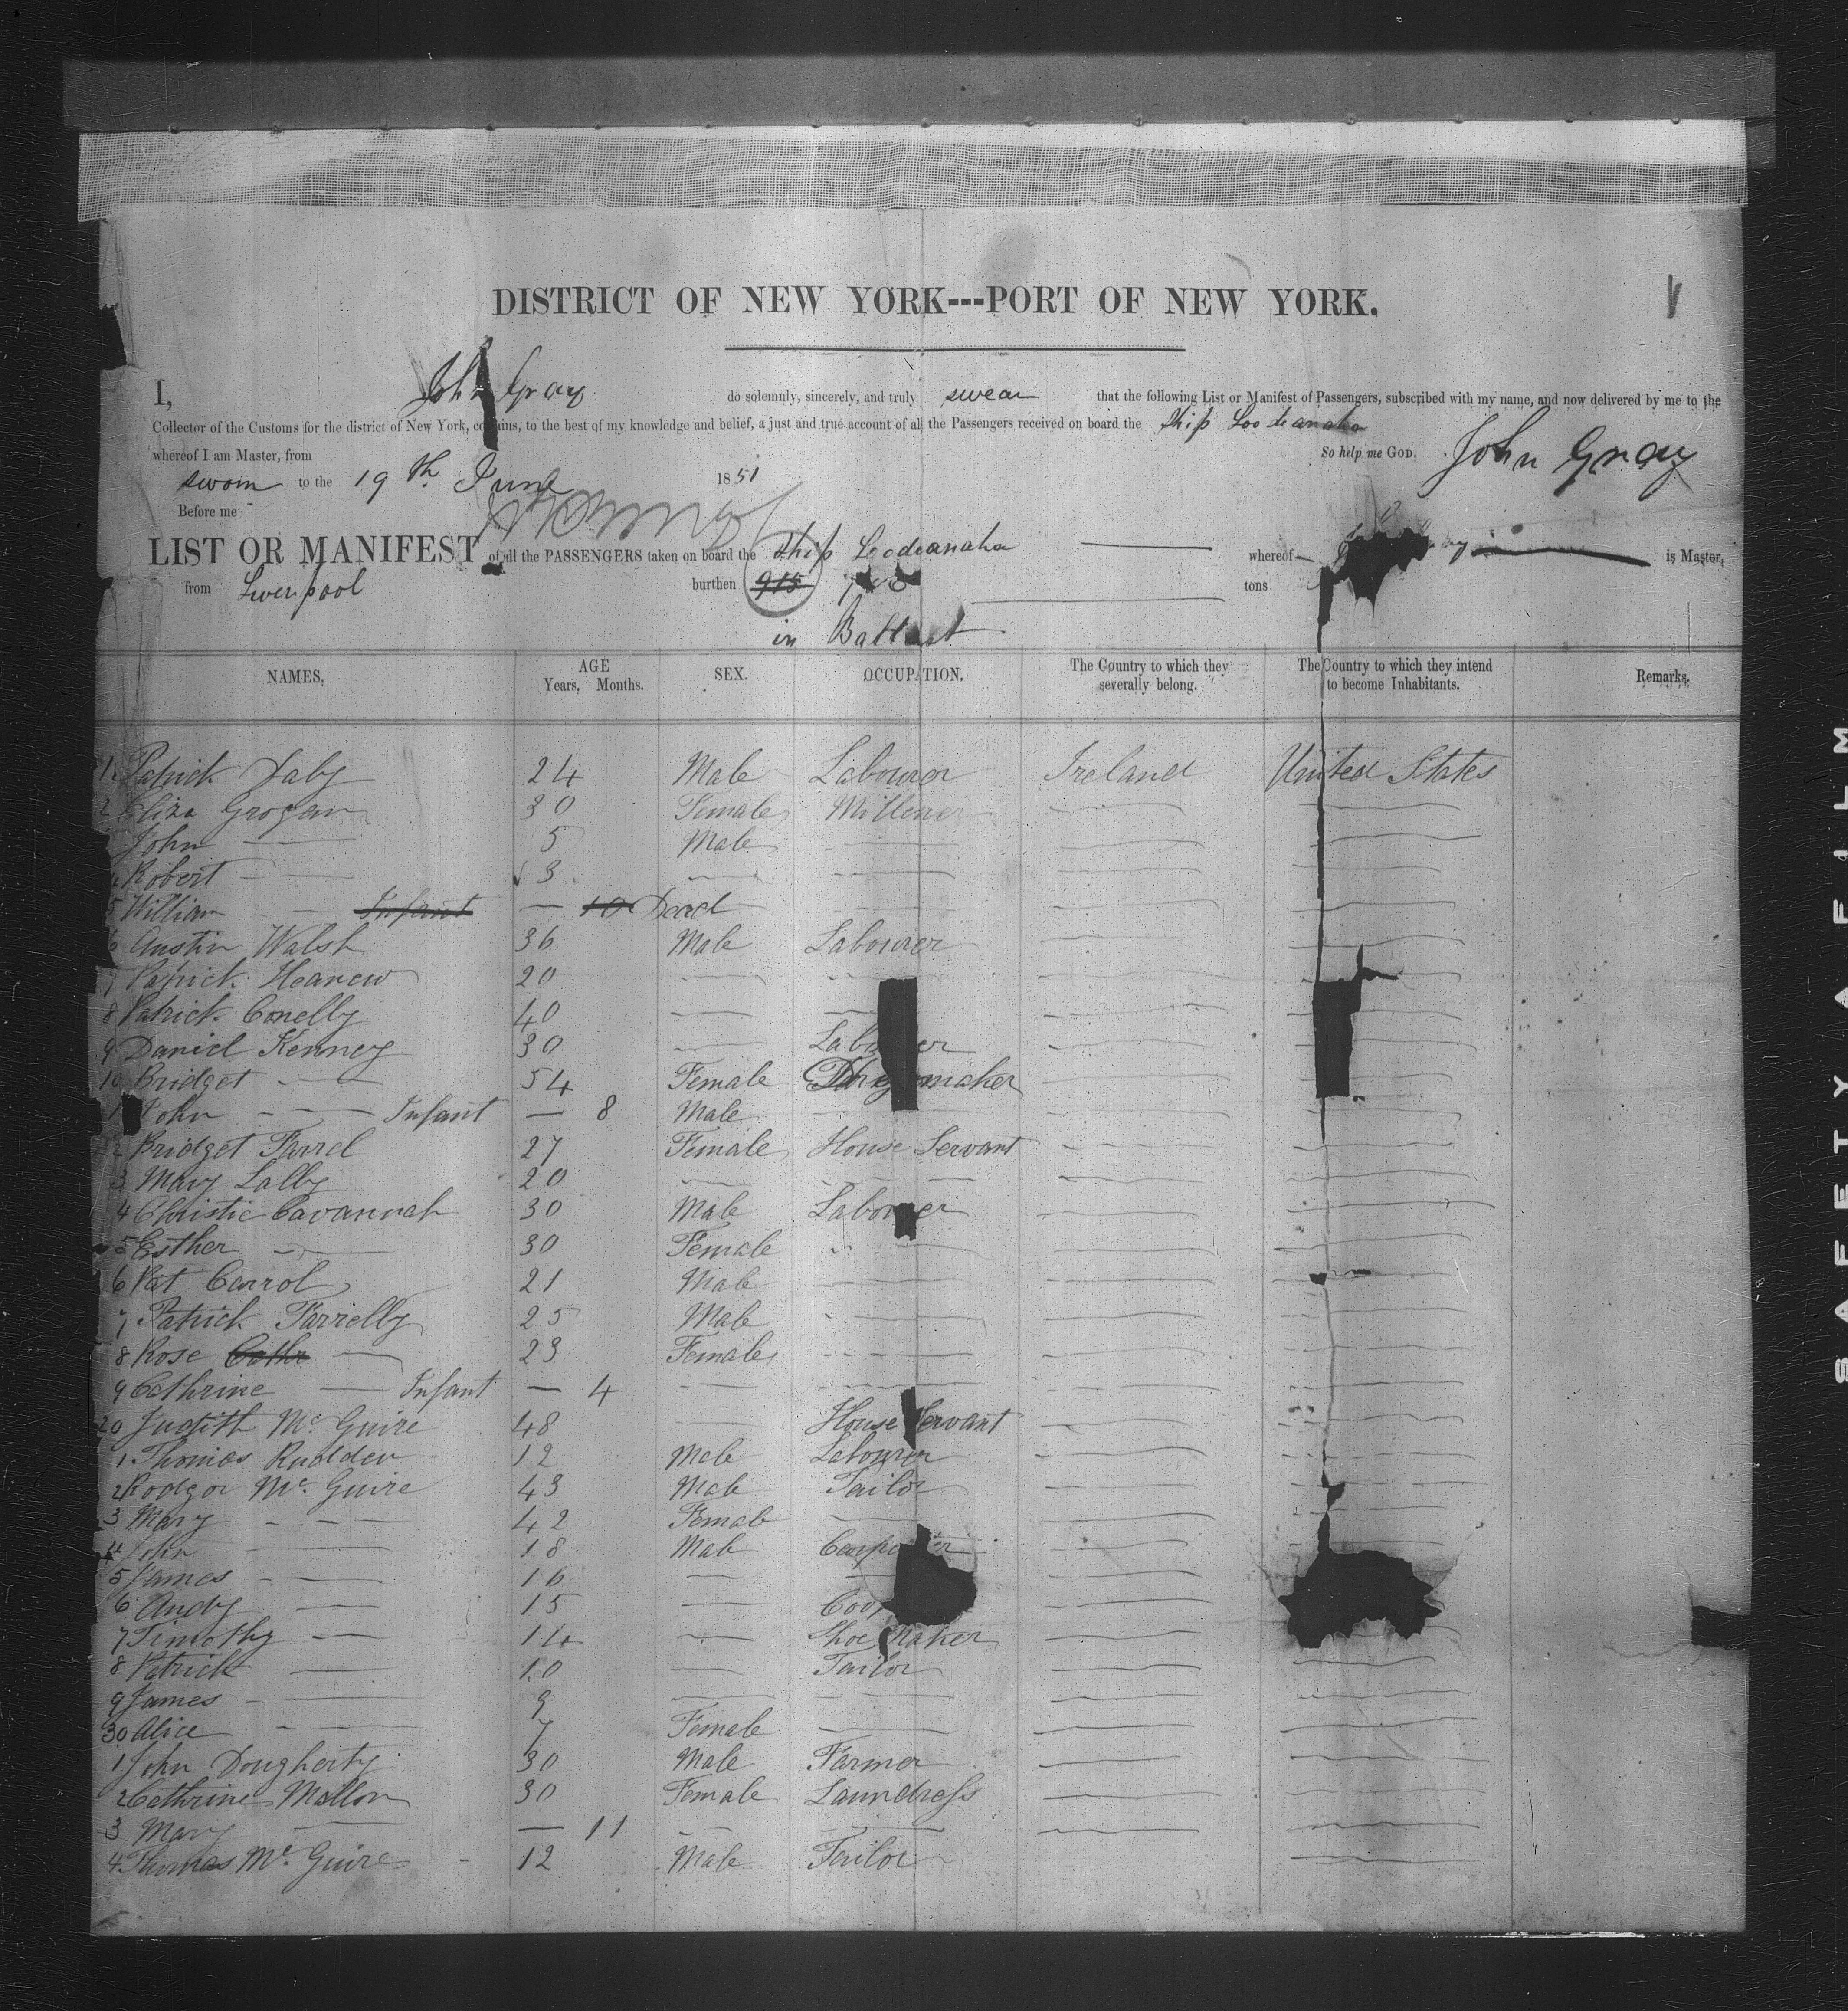 DISTRICT OF NEW YORK---PORT OF NEW YORK.
I, John Gray do solemnly, sincerely, and truly swear that the following List or Manifest of Passengers, subscribed with my name, and now delivered by me to the
Collector of the Customs for the district of New York, contains, to the best of my knowledge and belief, a just and true account of all the Passengers received on board the Ship Loodeanaha
whereof I am Master, from So help me GOD. John Gray
sworn to the 19th June 1851
Before me
LIST OR MANIFEST of all the PASSENGERS taken on board the Ship Loodeanaha whereof is Master,
from Liverpool burthen 915 tons
in Ballast
NAMES, AGE Years, Months. SEX. OCCUPATION, The Country to which they severally belong. The Country to which they intend to become Inhabitants. Remarks.
1 Patrick Daly 24 Male Labourer Ireland United States
2 Eliza Grogan 30 Female Millener
John — 5 Male
4 Robert — 3
5 William — Infant — 10 Dead
6 Austin Walsh 36 Male Labourer
7 Patrick 20
8 Patrick Conelly 40
9 Daniel Kenney 30 Labourer
10 Bridget — 54 Female maker
1 John — Infant — 8 Male
2 Bridget Farrel 27 Female House Servant
3 Mary Lally 20
4 Christie Cavannah 30 Male Labourer
5 Esther — 30 Female
6 Pat Carrol 21 Male
7 Patrick Farrelly 25 Male
8 Rose Cathr — 23 Female
9 Cathrine — Infant — 4
20 Judith Mc Guire 48 House Servant
1 Thomas Rudden 12 Male Labourer
2 Rodger Mc Guire 43 Male Tailor
3 Mary — 42 Female
4 John — 18 Male Carpenter
5 James — 16
6 Andy — 15
7 Timothy — 14 Shoe Maker
8 Patrick — 10 Tailor
9 James — 9
30 Alice — 7 Female
1 John Dougherty 30 Male Farmer
2 Cathrine Mallon 30 Female Laundress
3 Mary — 11
4 Thomas Mc Guire 12 Male Tailor
SAFETY FILM